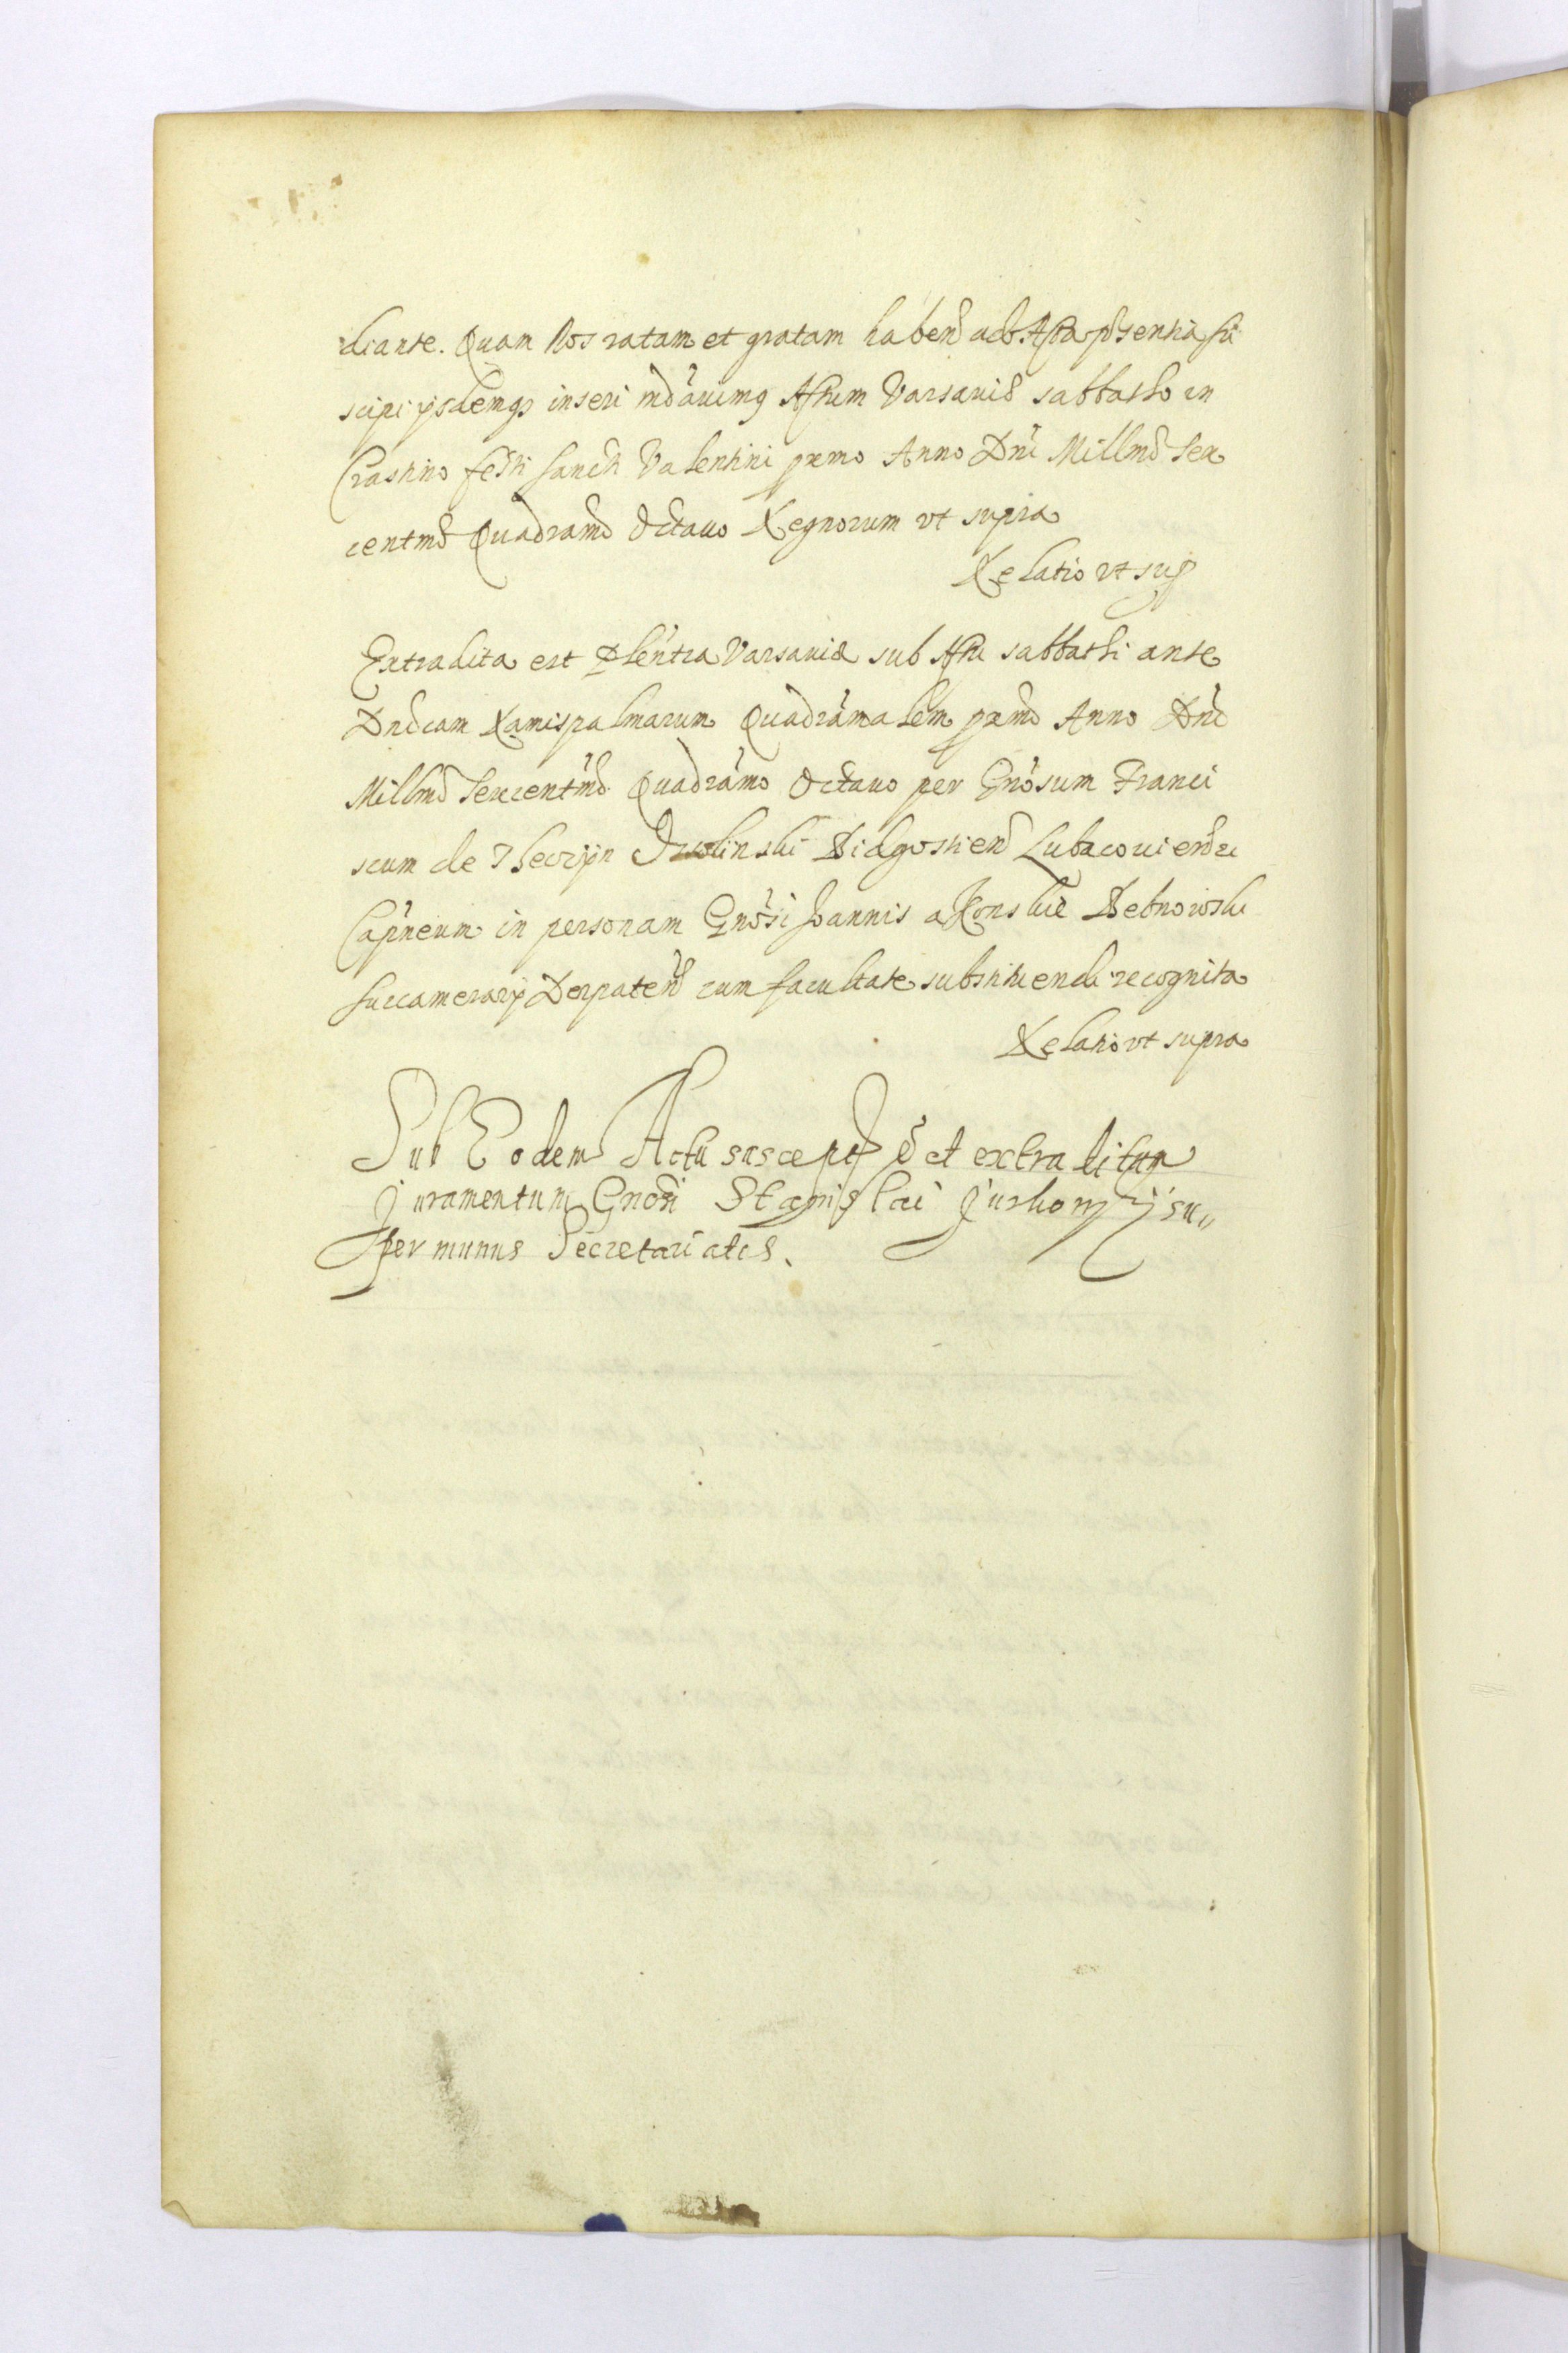 diante. Quam Nos ratam et gratam habend ad Acta pñtentia su
scipi ysdemq3 inseri mdauimg Actum Varsauie sabbatho in
Crastino festi sancti Valentini pxmo Anno Dni Millmo Sex
centmo Quadramo Octauo Regnorum vt supra
Relatio vt sup
Extradita est plentia Varsauiæ sub Actu sabbathi ante
Dndcam Ramispalmarum Quadramalem pxmo Anno Dni
Millmo Sexcentmo Quadramo Octauo per Gnosum Franci
scum de Theczyn Ossolinski Bidgostien Lubaczouiensem
Capneum in personam Gnosi Joannis a Konskie Debnowski
Succamerarij Derpaten cum facultate substituendi recognita
Relatio vt supra
Sub Eodem Actu suscept e et extraditum
juramentum Gnosi Stanislai su„
per munus Secretariatus.